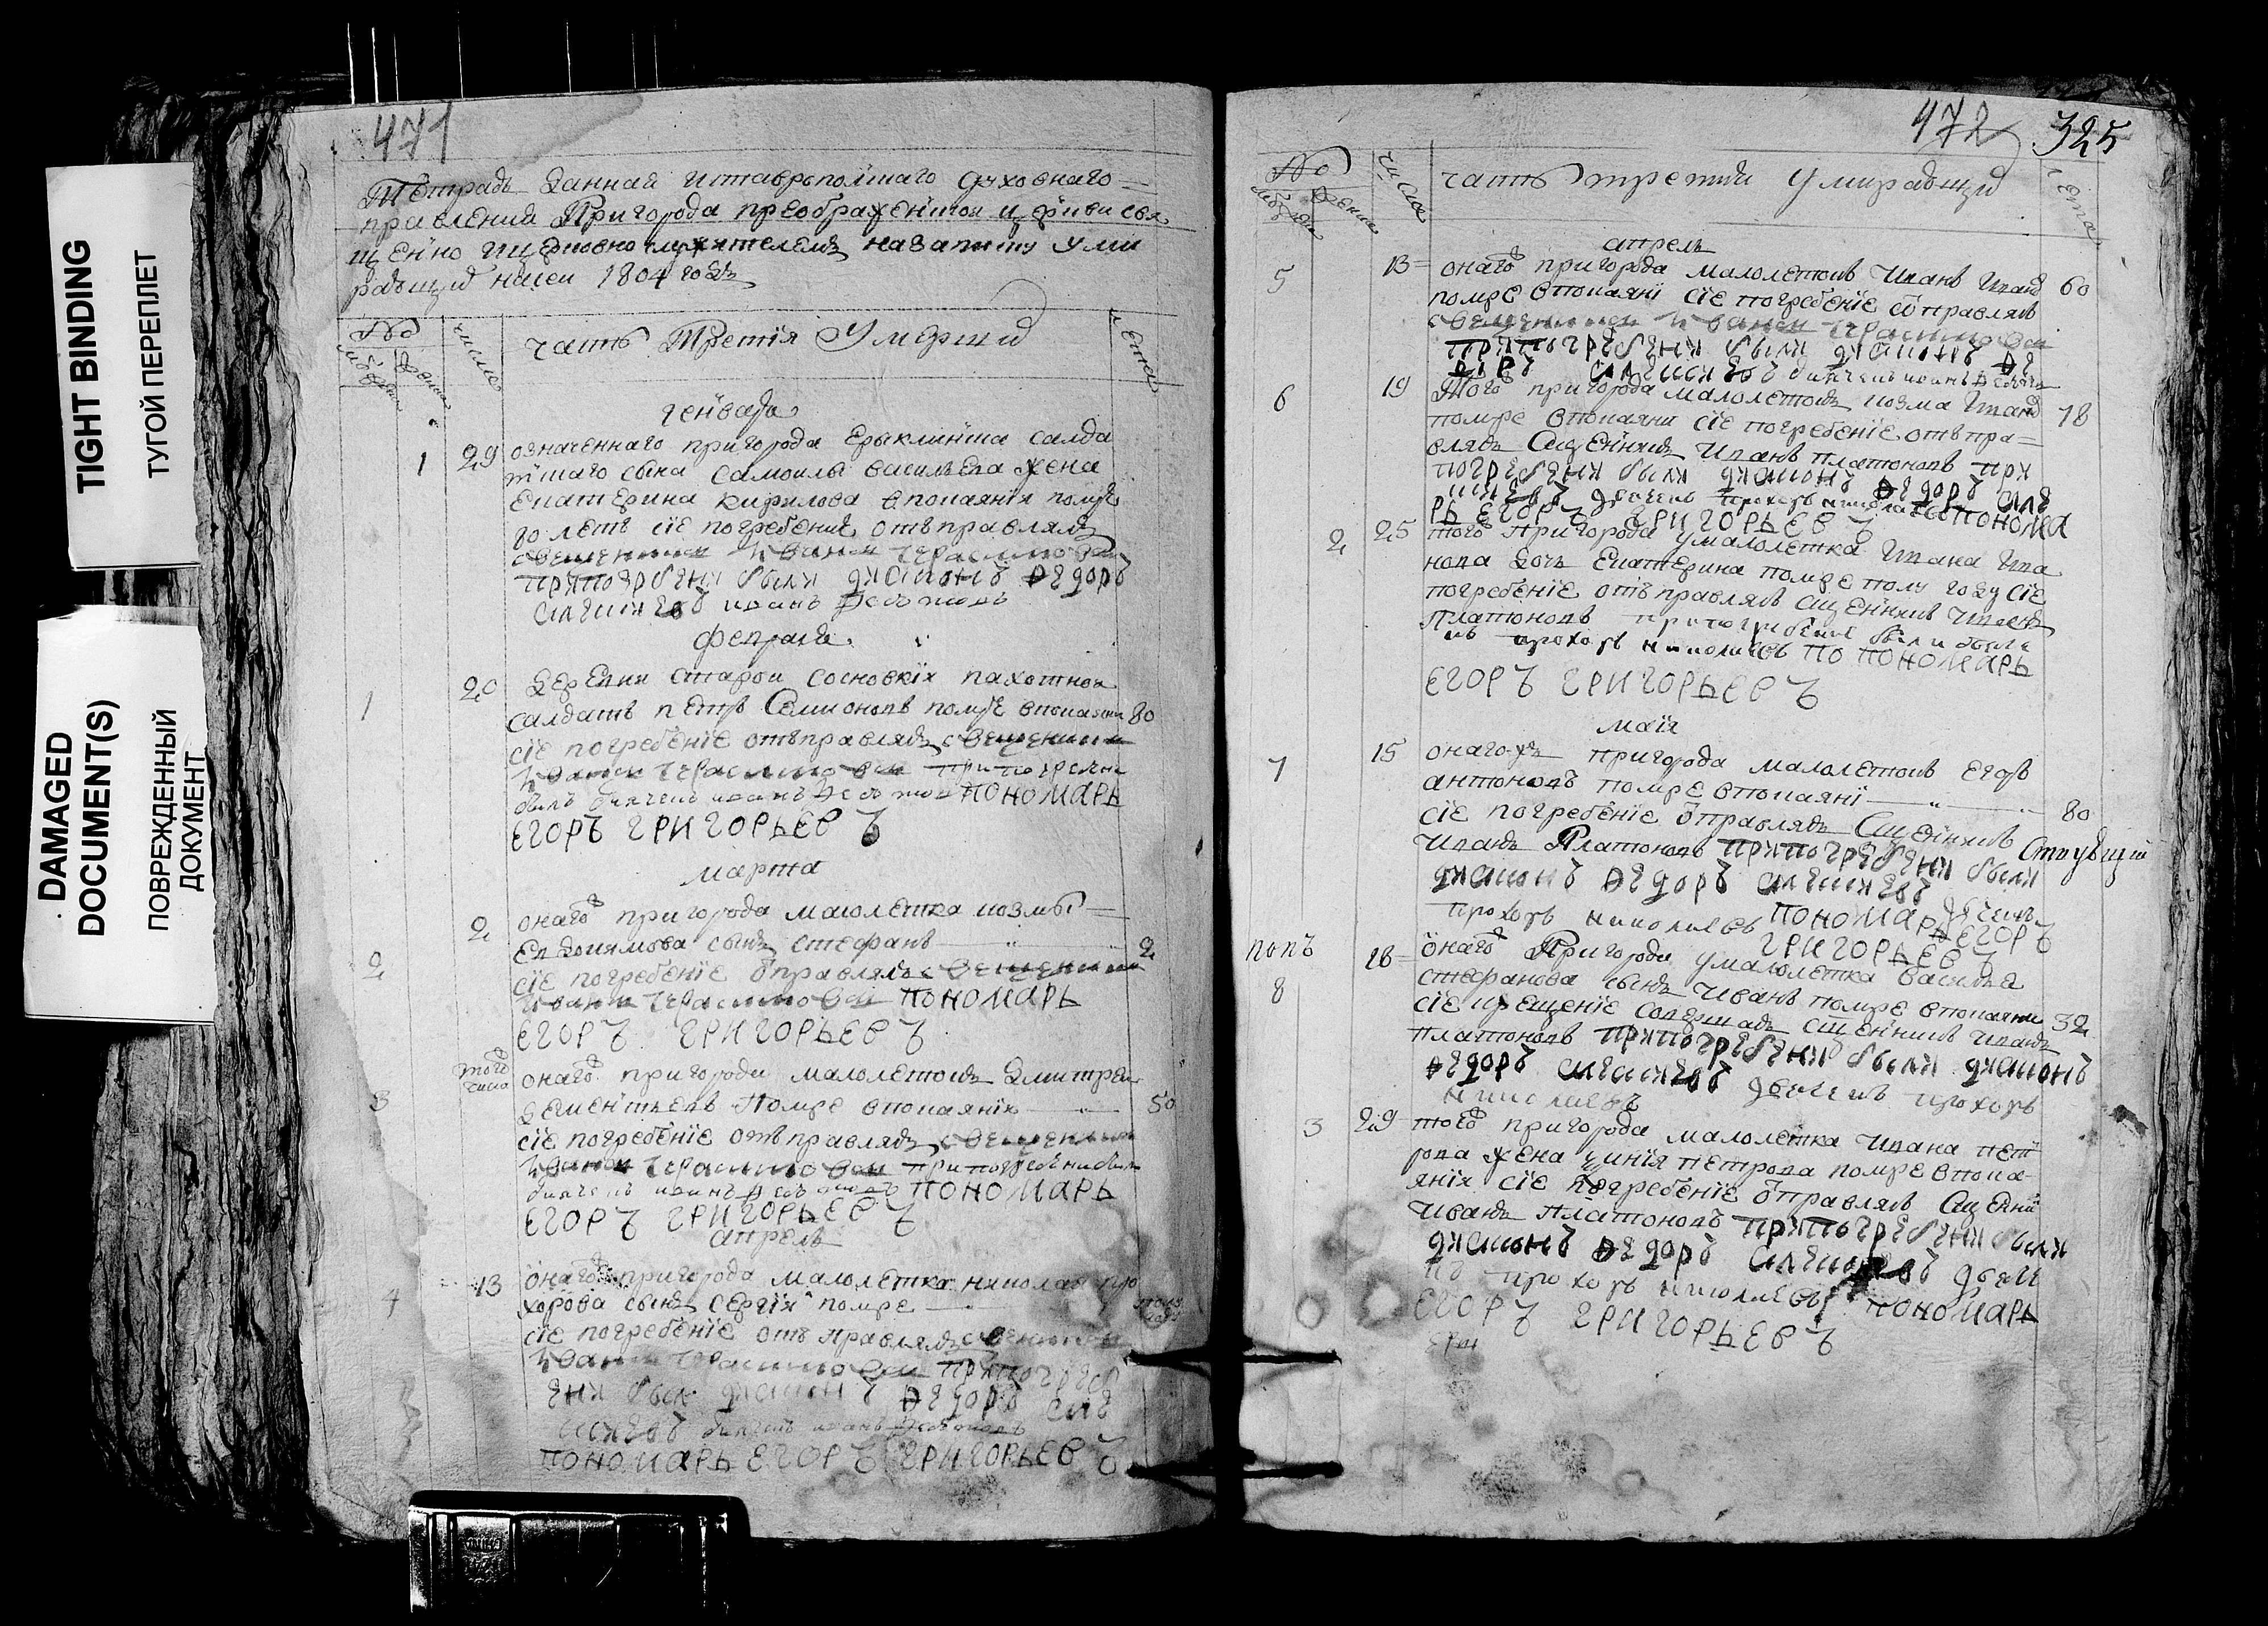 TIGHT BINDING
ТУГОЙ ПЕРЕПЛЕТ
DAMAGED
DOCUMENT(S)
ПОВРЕЖДЕННЫЙ
ДОКУМЕНТ
471
Тетрадь данная иставропольшаго духовнаго
правления Пригорода преображенъской церкви свя
щенно ицерковно служителемъ назаписку уми
рающихъ насеи 1804 годъ
№
число
часть Третия Умерших
лета
генваря
1 29 означеннаго пригорода Ерыклинъска салда
тъскаго сына самоилы васильева жена
Екатерина кирилова впокаяния помре
70 летъ сие погребение отъправлялъ
священникъ Иванъ Герасимовъ
припогребени были диаконъ Федоръ
Алексиевъ иванъ Федотовъ
февраля
1 20 деревни старои сосновки пахотнои
салдатъ петръ Семионовъ помре впокаянии 80
сие погребение отъправлялъ священникъ
Иванъ Герасимовъ при погребени
былъ дьячекъ иванъ Федотовъ ПОНОМАРЬ
ЕГОРЪ ГРИГОРЬЕВЪ
марта
2 2 онаго пригорода малолетка козмы
Евдокимова сынъ стефанъ 2
сие погребение оправлялъ священникъ
Иванъ Герасимовъ ПОНОМАРЬ
ЕГОРЪ ГРИГОРЬЕВЪ
того числа
3 онаго пригорода малолетокъ дмитреи
дементьевъ Помре впокаянии 50
сие погребение отъправлялъ священникъ
Иванъ Герасимовъ припогребени были
дьячекъ иванъ Федотовъ ПОНОМАРЬ
ЕГОРЪ ГРИГОРЬЕВЪ
апрель
4 13 онаго пригорода малолетка николая про
хорова сынъ сергия помре
сие погребение отъ правлялъ священникъ
Иванъ Герасимовъ припогреб
ени были диаконъ Федоръ Але
ксиевъ дьячекъ иванъ Федотовъ
ПОНОМАРЬ ЕГОРЪ ГРИГОРЬЕВЪ
472 325
№
число
часть третия умирающих
лета
апрель
5 13 онаго пригорода малолетокъ Иванъ Ивано 60
помре впокаяни сие погребение отправлялъ
священникъ Иванъ Герасимовъ
припогребени были диаконъ Фе
доръ Алексиевъ дьячекъ иванъ Федотовъ
6 19 Того пригорода малолетокъ козма Ивано 78
помре впокаяни сие погребение отъпра
влялъ Сщенникъ Иванъ платоновъ при
погребени были диаконъ Федоръ Але
ксиевъ дьячекъ прохоръ николаевъ ПОНОМА
РЬ ЕГОРЪ ГРИГОРЬЕВЪ
2 25 того Пригорода умалолетка Ивана Ива
нова дочь Екатерина помре полу году сие
погребение отъправлялъ Сщенникъ Иванъ
Платоновъ припогребение были дьяче
къ прохоръ николаевъ ПО ПОНОМАРЬ
ЕГОРЪ ГРИГОРЬЕВЪ
маия
7 15 онаго-жъ пригорода малолетокъ Егоръ
антоновъ помре впокаяни
сие погребение отправлялъ Сщенникъ 80
Иванъ Платоновъ припогребени были
диаконъ Федоръ Алексиевъ дьячекъ
прохоръ николаевъ ПОНОМАРЬ ЕГОРЪ
ГРИГОРЬЕВЪ
попъ
8 18 онаго Пригорода умалолетка василья
стефанова сынъ Иванъ помре впокаяни 32
сие крещение совершалъ Сщенникъ Иванъ
платоновъ припогребени были диаконъ
Федоръ Алексиевъ дьячекъ прохоръ
николаевъ
3 29 того пригорода малолетка Ивана пет
рова жена петрова помре впока
яния сие погребение отправлялъ Сщенни
Иванъ платоновъ припогребени были
диаконъ Федоръ Алексиевъ дьяче
къ прохоръ николаевъ ПОНОМАРЬ
ЕГОРЪ ГРИГОРЬЕВЪ